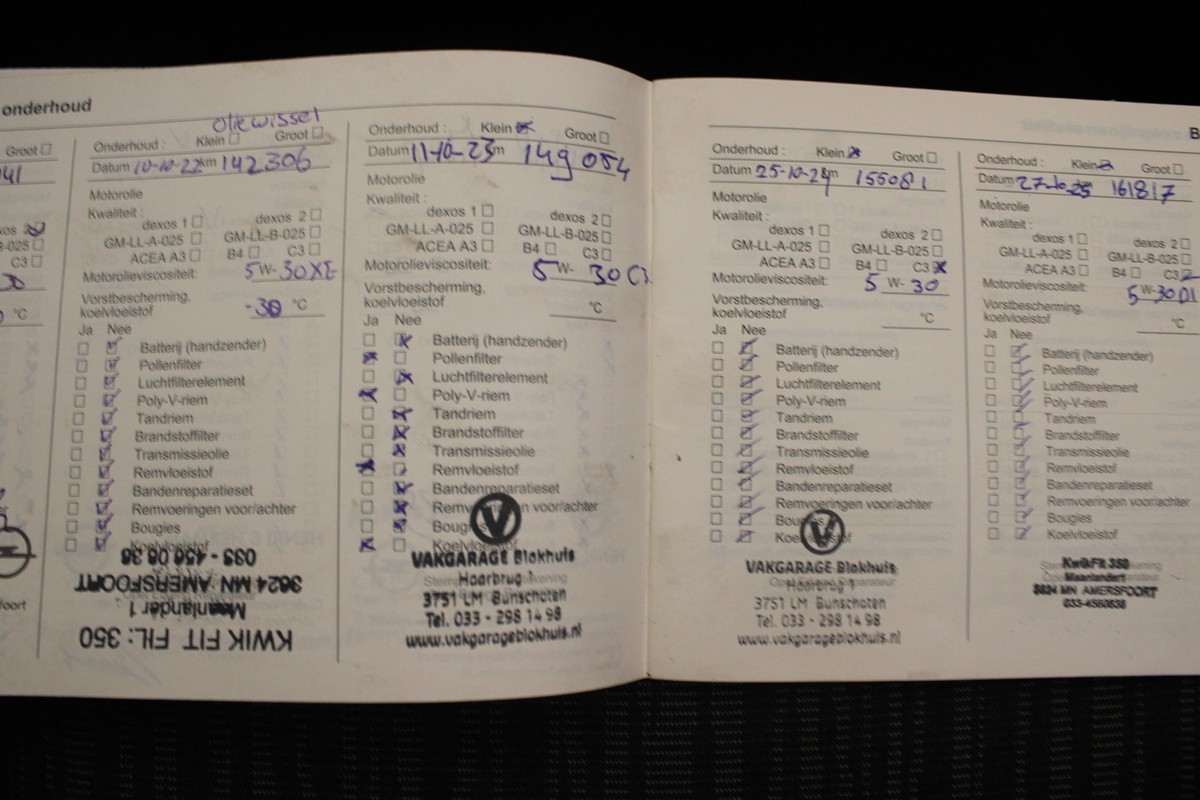 onderhoud
Groot
C3
°C
oliewissel
Onderhoud : Klein Groot
Datum 10-10-22 km 142306
Motorolie
Kwaliteit :
dexos 1 dexos 2
GM-LL-A-025 GM-LL-B-025
ACEA A3 B4 C3
Motorolieviscositeit: 5 W- 30 XE
Vorstbescherming,
koelvloeistof -30 °C
Ja Nee
Batterij (handzender)
Pollenfilter
Luchtfilterelement
Poly-V-riem
Tandriem
Brandstoffilter
Transmissieolie
Remvloeistof
Bandenreparatieset
Remvoeringen voor/achter
Bougies
Koelvloeistof
KWIK FIT FIL: 350
Maanlander 1
3824 MN AMERSFOORT
033 - 456 08 38
Onderhoud : Klein Groot
Datum 11-10-23 km 149 054
Motorolie
Kwaliteit :
dexos 1 dexos 2
GM-LL-A-025 GM-LL-B-025
ACEA A3 B4 C3
Motorolieviscositeit: 5 W- 30 C3
Vorstbescherming,
koelvloeistof °C
Ja Nee
Batterij (handzender)
Pollenfilter
Luchtfilterelement
Poly-V-riem
Tandriem
Brandstoffilter
Transmissieolie
Remvloeistof
Bandenreparatieset
Remvoeringen voor/achter
Bougies
Koelvloeistof
V
VAKGARAGE Blokhuis
Haarbrug 1
3751 LM Bunschoten
Tel. 033 - 298 14 98
www.vakgarageblokhuis.nl
Onderhoud : Klein Groot
Datum 25-10-24 km 155081
Motorolie
Kwaliteit :
dexos 1 dexos 2
GM-LL-A-025 GM-LL-B-025
ACEA A3 B4 C3
Motorolieviscositeit: 5 W- 30
Vorstbescherming,
koelvloeistof °C
Ja Nee
Batterij (handzender)
Pollenfilter
Luchtfilterelement
Poly-V-riem
Tandriem
Brandstoffilter
Transmissieolie
Remvloeistof
Bandenreparatieset
Remvoeringen voor/achter
Bougies
Koelvloeistof
V
VAKGARAGE Blokhuis
Haarbrug 1
3751 LM Bunschoten
Tel. 033 - 298 14 98
www.vakgarageblokhuis.nl
Onderhoud : Klein Groot
Datum 27-10-25 161817
Motorolie
Kwaliteit :
dexos 1 dexos 2
GM-LL-A-025 GM-LL-B-025
ACEA A3 B4 C3
Motorolieviscositeit: 5 W-30 D1
Vorstbescherming,
koelvloeistof °C
Ja Nee
Batterij (handzender)
Pollenfilter
Luchtfilterelement
Poly-V-riem
Tandriem
Brandstoffilter
Transmissieolie
Remvloeistof
Bandenreparatieset
Remvoeringen voor/achter
Bougies
Koelvloeistof
KwikFit 350
Maanlander1
3824 MN AMERSFOORT
033-4560838